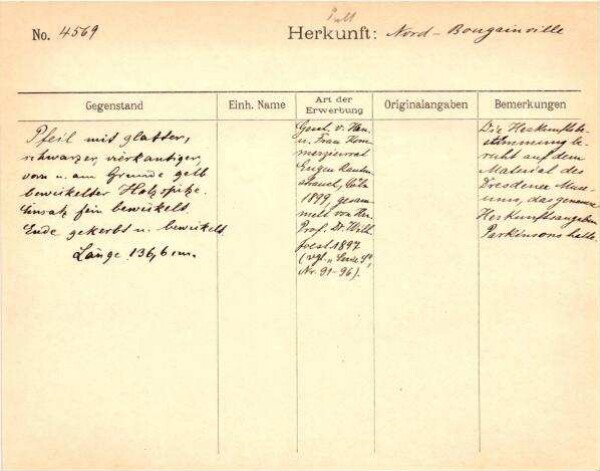 No. 4569
Herkunft: Nord-Bougainville
Gegenstand
Einh. Name
Art der Erwerbung
Originalangaben
Bemerkungen
Pfeil mit glatter,
schwarzer, vierkantiger,
vorn u. am Grunde gelb
bewickelter Holzspitze.
Einsatz fein bewickelt.
Ende gekerbt u. bewickelt.
Länge 136,6 cm.
Gesch. v. Hrn.
u. Frau Kom-
merzienrat
Eugen Rauten-
strauch, Cöln
1899, gesam-
melt von Hrn.
Prof. Dr. Wilh.
Joest 1897
(vgl. "Serie
Nr. 91-96).
Die Herkunftsbe-
stimmung be-
ruht auf dem
Material des
Dresdener Muse-
ums, das genaue
Herkunftsangaben
Parkinsons hatte.